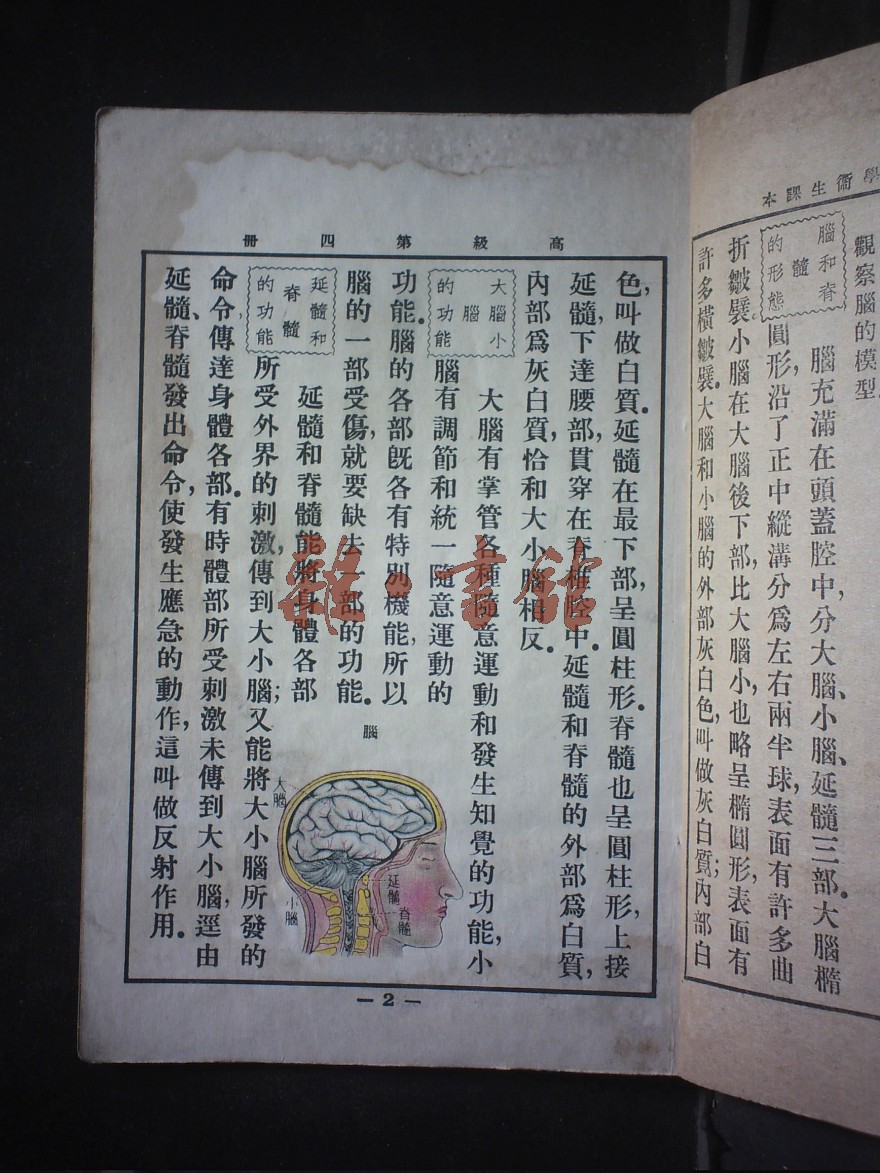 學衞生課本
觀察腦的模型.
腦和脊
髓
的形態
腦充滿在頭蓋腔中,分大腦、小腦、延髓三部.大腦橢
圓形,沿了正中縱溝分爲左右兩半球,表面有許多曲
折皺襞.小腦在大腦後下部,比大腦小,也略呈橢圓形,表面有
許多橫皺襞.大腦和小腦的外部灰白色,叫做灰白質;內部白
高級第四冊
色,叫做白質.延髓在最下部,呈圓柱形.脊髓也呈圓柱形,上接
延髓,下達腰部,貫穿在脊椎腔中.延髓和脊髓的外部爲白質,
內部爲灰白質,恰和大小腦相反.
大腦小
腦
的功能
大腦有掌管各種隨意運動和發生知覺的功能,小
腦有調節和統一隨意運動的
功能.腦的各部旣各有特別機能,所以
腦的一部受傷,就要缺去一部的功能.
延髓和
脊髓
的功能
延髓和脊髓能將身體各部
所受外界的刺激,傳到大小腦;又能將大小腦所發的
命令,傳達身體各部.有時體部所受刺激未傳到大小腦,逕由
延髓、脊髓發出命令,使發生應急的動作,這叫做反射作用.
腦
大腦
小腦
延髓
脊髓
— 2 —
雜·書館